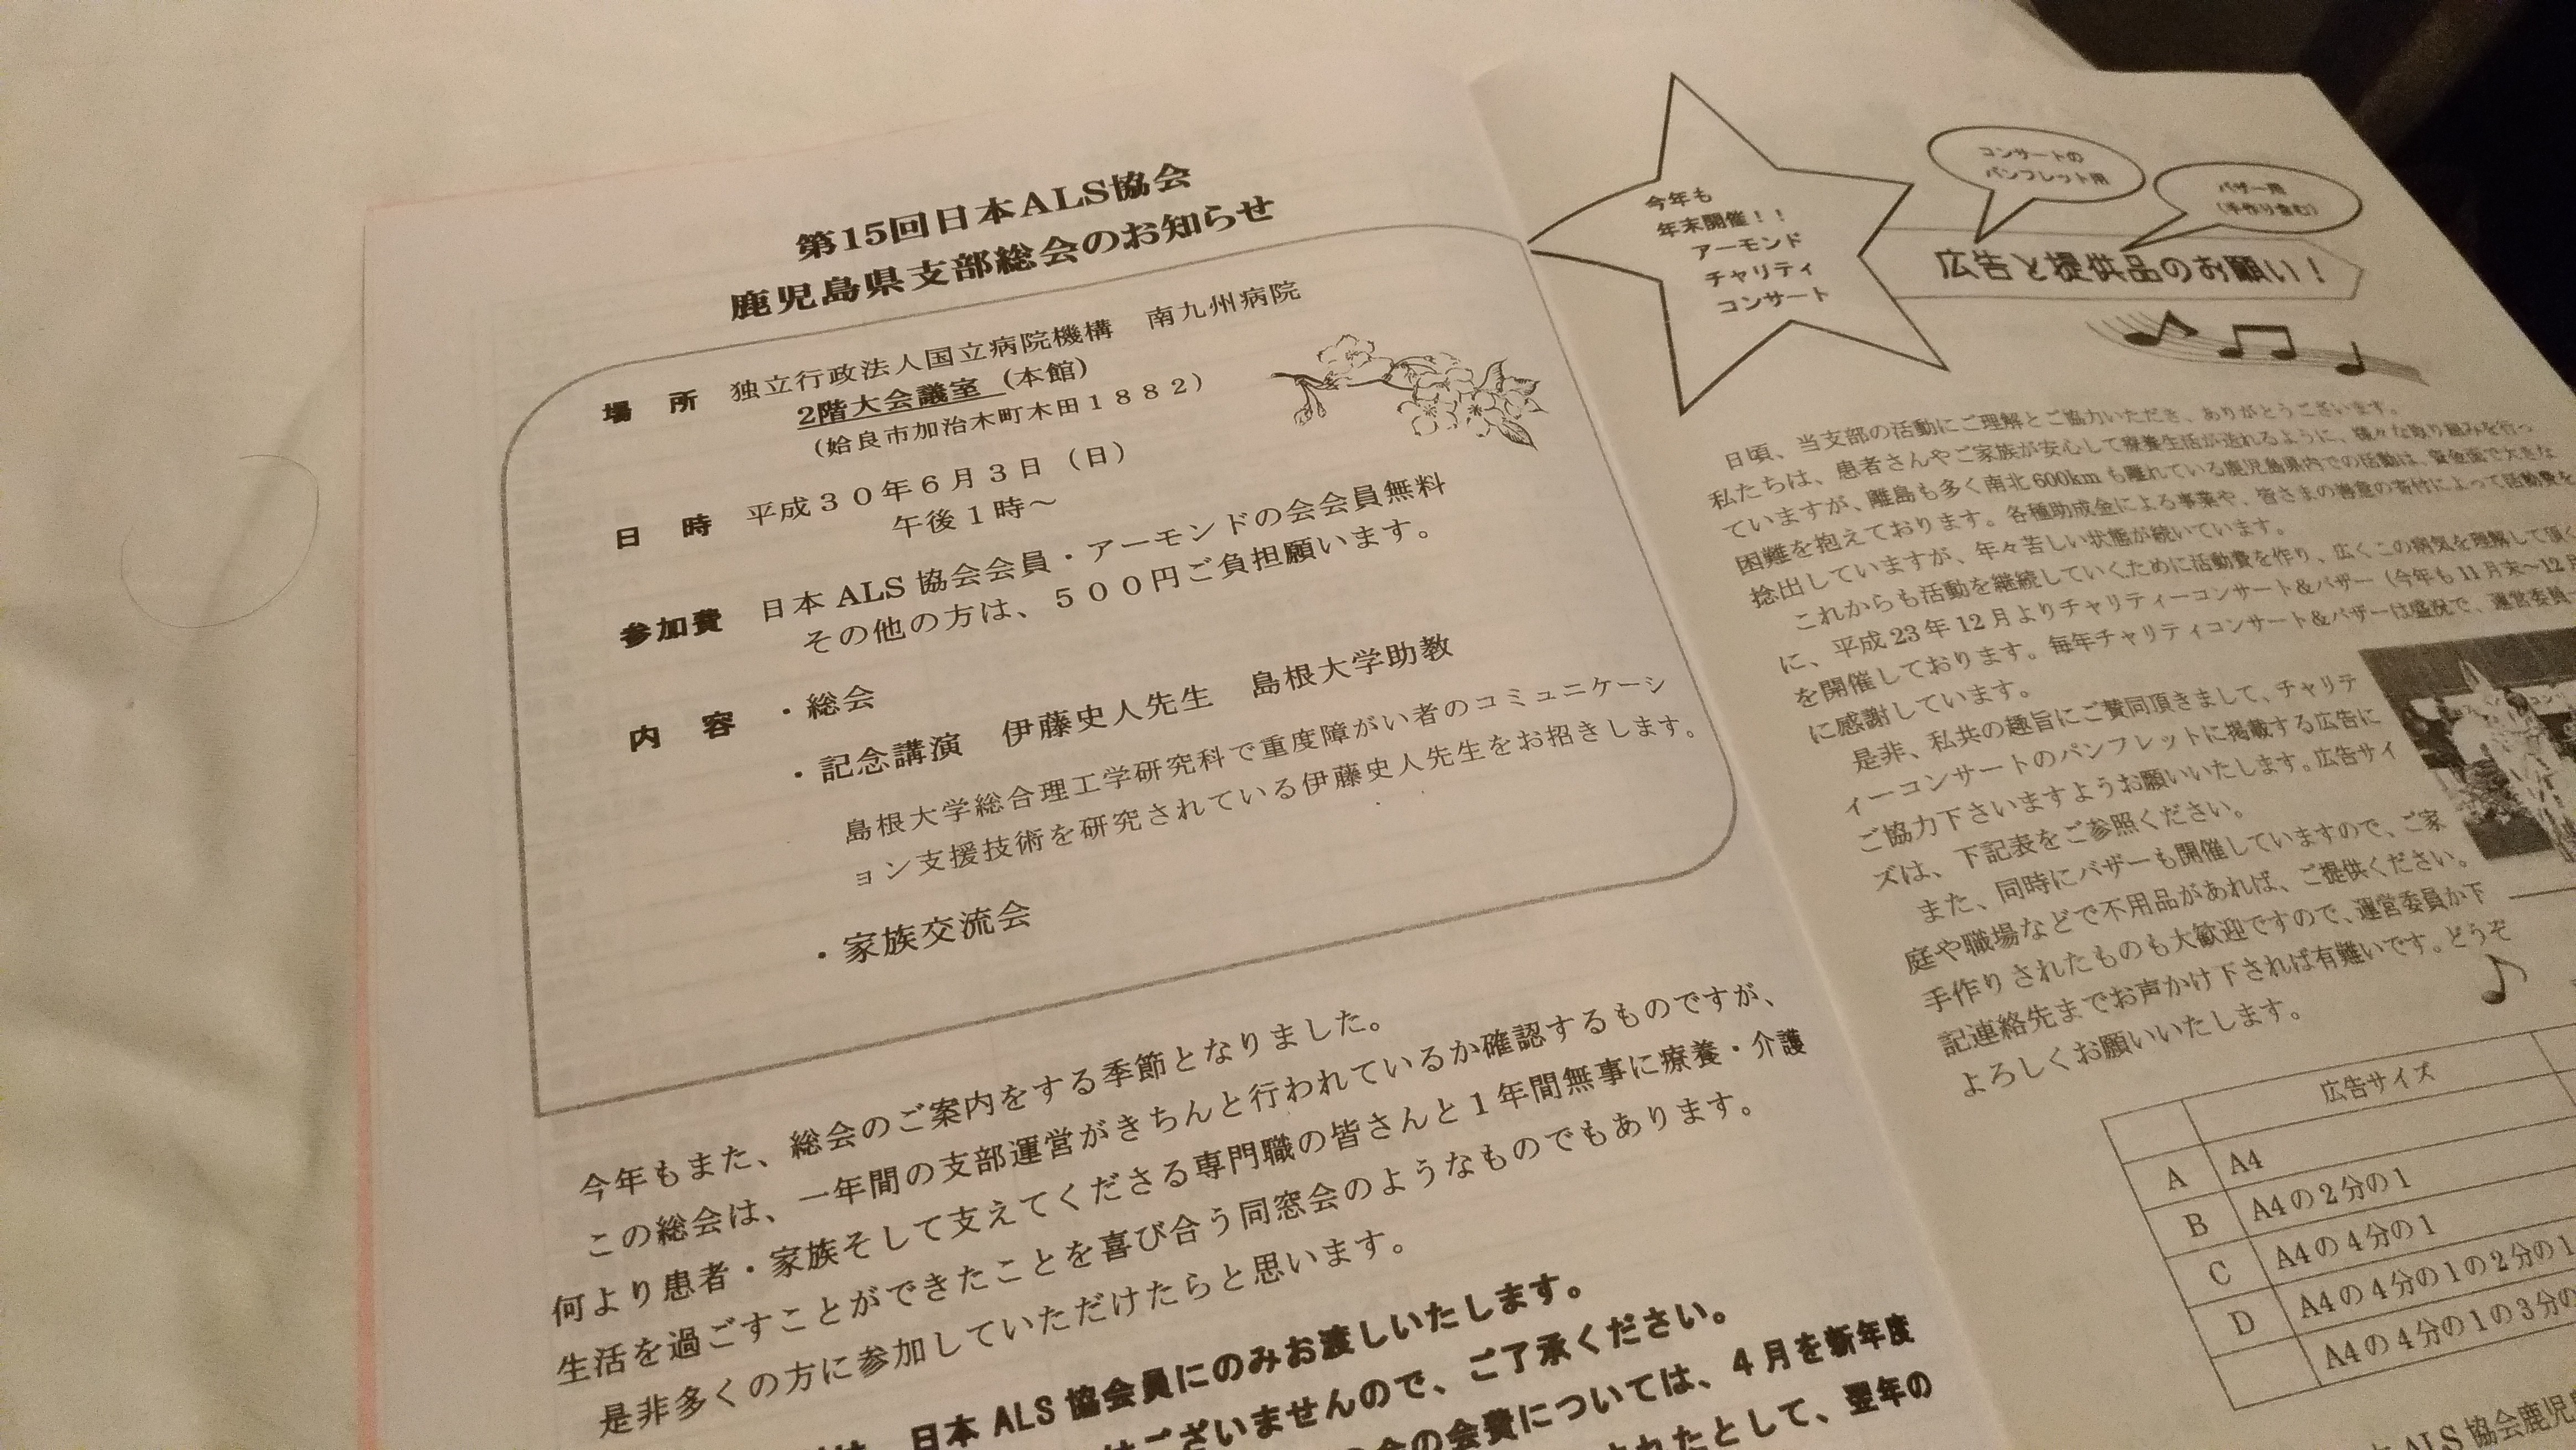 第15回日本ALS協会
鹿児島県支部総会のお知らせ
場　所　独立行政法人国立病院機構　南九州病院
2階大会議室（本館）
（姶良市加治木町木田１８８２）
日　時　平成３０年６月３日（日）
午後１時～
参加費　日本 ALS 協会会員・アーモンドの会会員無料
その他の方は、５００円ご負担願います。
内　容　・総会
・記念講演　伊藤史人先生　島根大学助教
島根大学総合理工学研究科で重度障がい者のコミュニケーシ
ョン支援技術を研究されている伊藤史人先生をお招きします。
・家族交流会
今年もまた、総会のご案内をする季節となりました。
この総会は、一年間の支部運営がきちんと行われているか確認するものですが、
何より患者・家族そして支えてくださる専門職の皆さんと１年間無事に療養・介護
生活を過ごすことができたことを喜び合う同窓会のようなものでもあります。
是非多くの方に参加していただけたらと思います。
日本 ALS 協会員にのみお渡しいたします。
ございませんので、ご了承ください。
の会費については、４月を新年度
されたとして、翌年の
今年も
年末開催！！
アーモンド
チャリティ
コンサート
コンサートの
パンフレット用
バザー用
（手作り含む）
広告と提供品のお願い！
日頃、当支部の活動にご理解とご協力いただき、ありがとうございます。
私たちは、患者さんやご家族が安心して療養生活が送れるように、様々な取り組みを行っ
ていますが、離島も多く南北600kmも離れている鹿児島県内での活動は、資金面で大きな
困難を抱えております。各種助成金による事業や、皆さまの善意の寄付によって活動費を
捻出していますが、年々苦しい状態が続いています。
これからも活動を継続していくために活動費を作り、広くこの病気を理解して頂く
に、平成23年12月よりチャリティーコンサート＆バザー（今年も11月末～12月
を開催しております。毎年チャリティコンサート＆バザーは盛況で、運営委員
に感謝しています。
是非、私共の趣旨にご賛同頂きまして、チャリテ
ィーコンサートのパンフレットに掲載する広告に
ご協力下さいますようお願いいたします。広告サイ
ズは、下記表をご参照ください。
また、同時にバザーも開催していますので、ご家
庭や職場などで不用品があれば、ご提供ください。
手作りされたものも大歓迎ですので、運営委員か下
記連絡先までお声かけ下されば有難いです。どうぞ
よろしくお願いいたします。
広告サイズ
A　A4
B　A4の2分の1
C　A4の4分の1
D　A4の4分の1の2分の1
A4の4分の1の3分の
ALS 協会鹿児